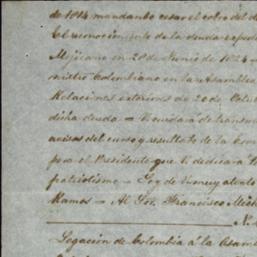 de 1814 mandando cesar el cobro del d
El reconocimiento de la deuda espedi
Mejicano en 28 de Junio de 1824
nistro Colombiano en la Asamblea
Relaciones exteriores de 20 de Octu
dicha deuda — V. cuidará de transm
avisos del curso y resultado de la Com
pora el Presidente que V. dedicará
patriotismo — Soy de V. muy atento
Ramos — Al Sor. Francisco Mich
N.
Legacion de Colombia á la Asam